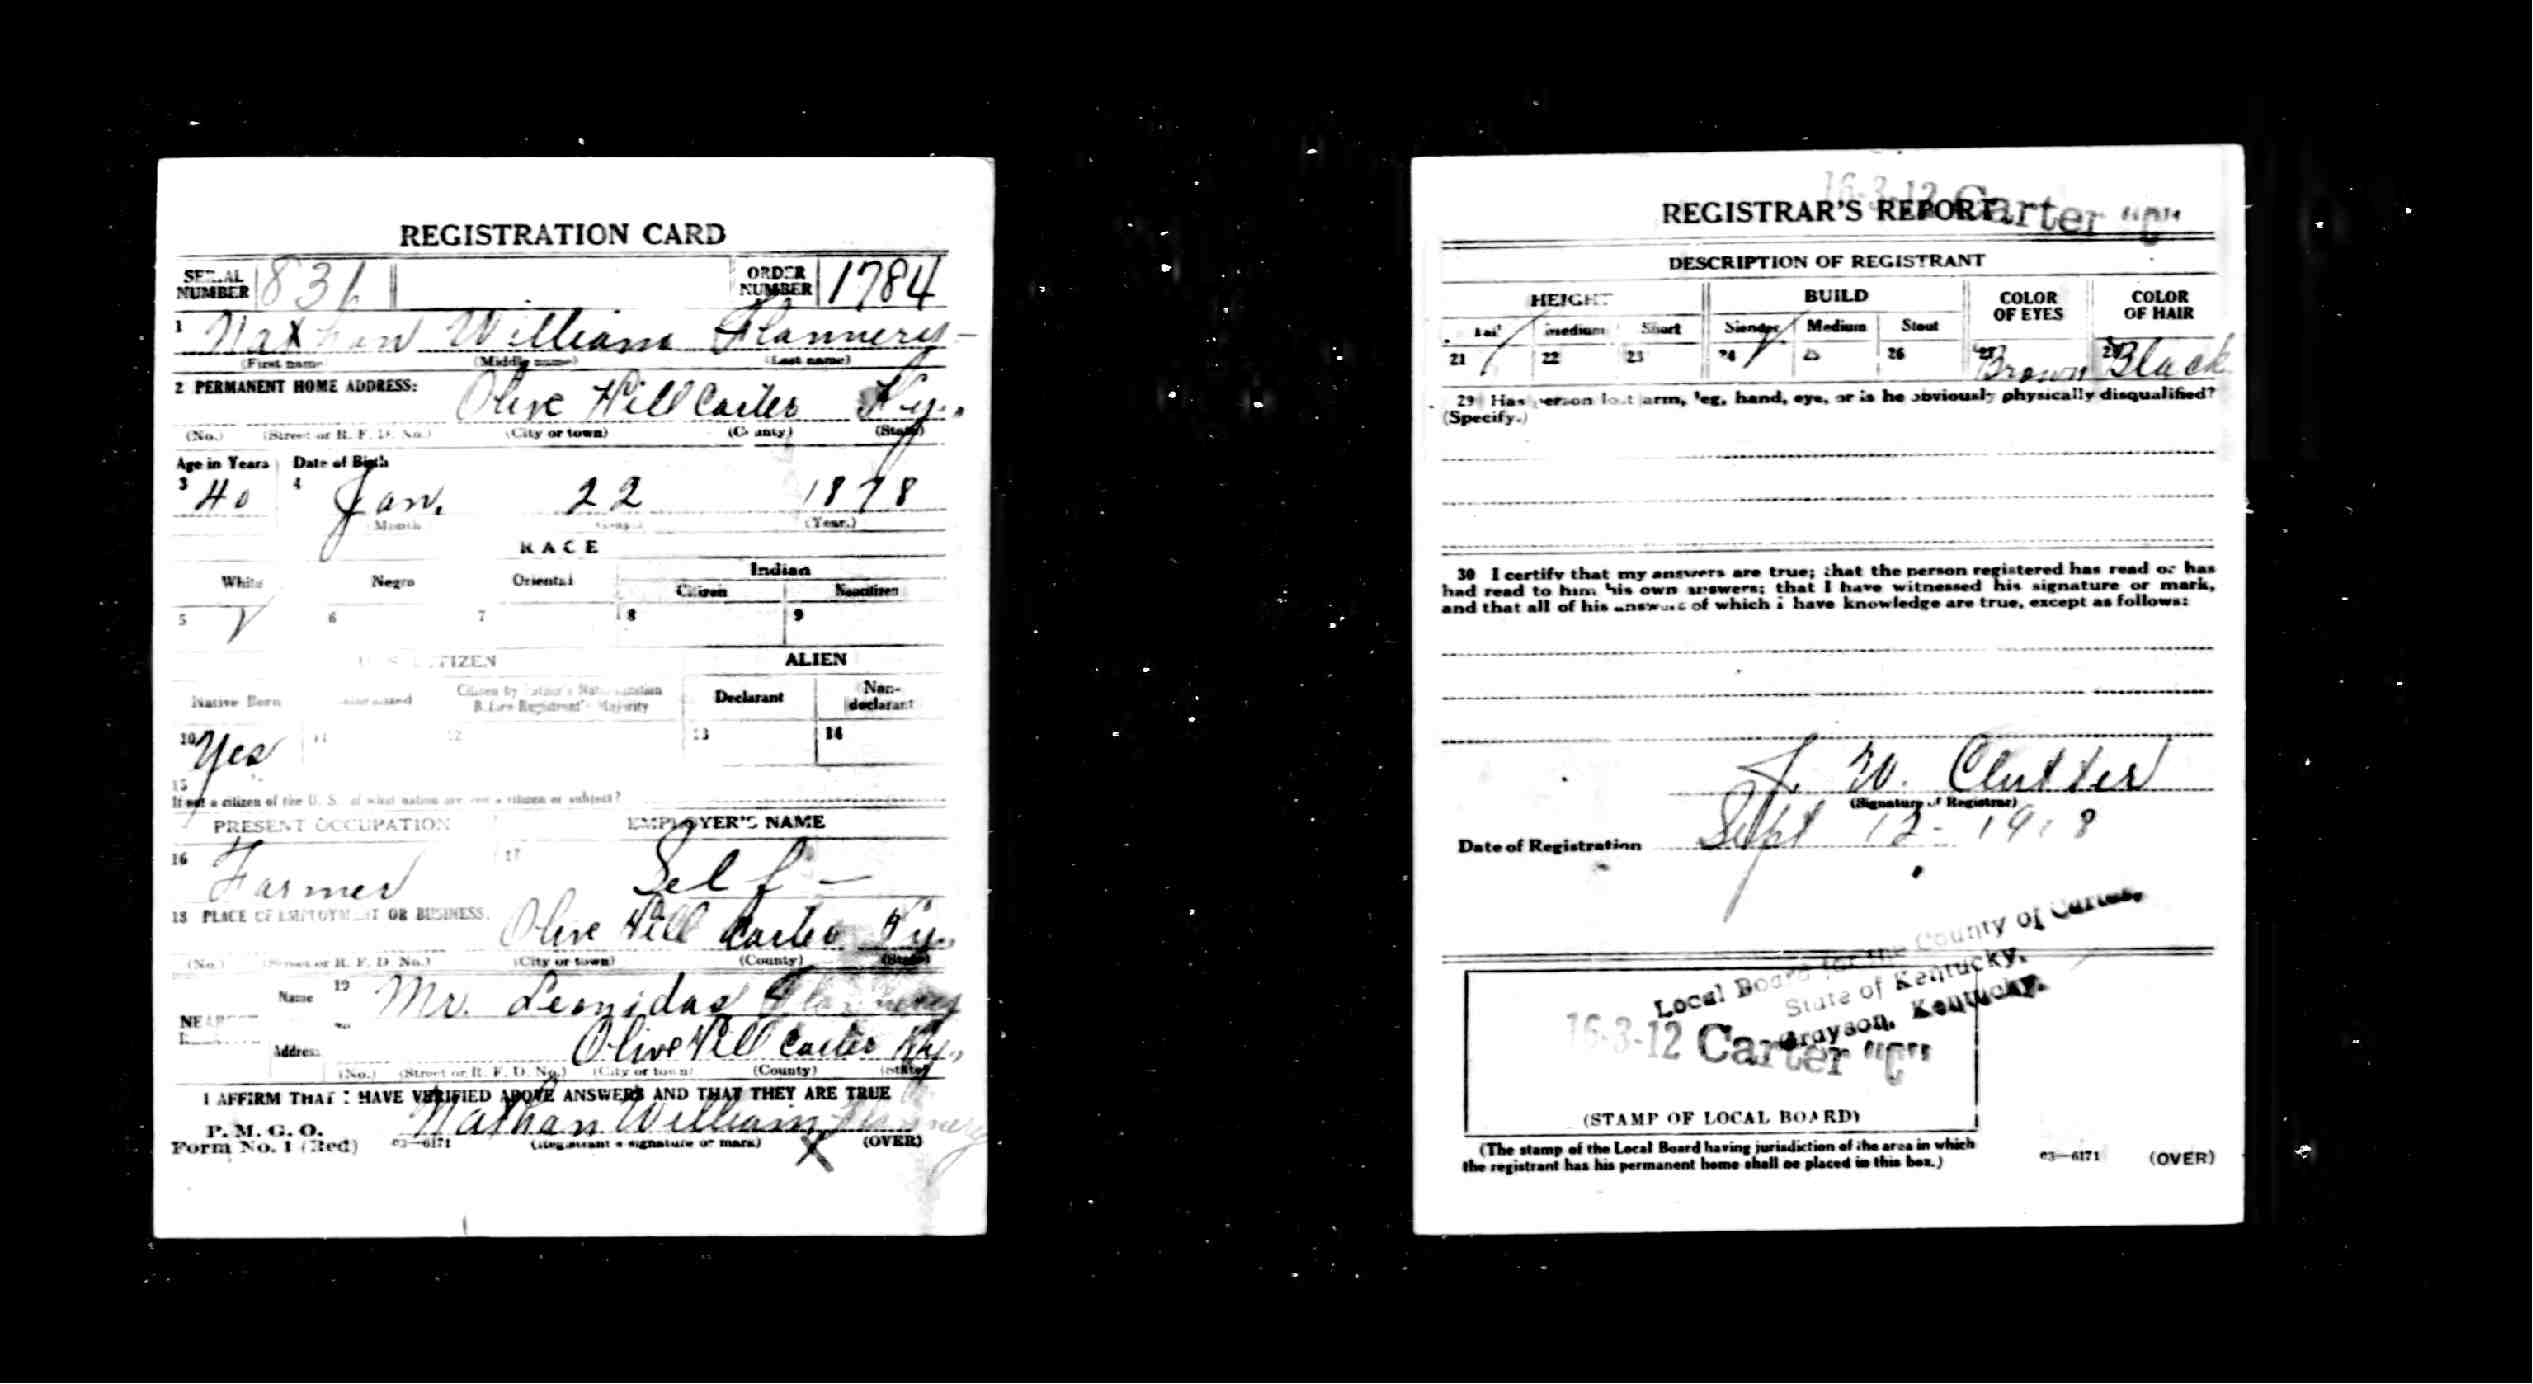 REGISTRATION CARD
SERIAL NUMBER 831 ORDER NUMBER 1784
1 Nathan William Flannery
(First name) (Middle name) (Last name)
2 PERMANENT HOME ADDRESS:
Olive Hill Carter Ky.
(No.) (Street or R. F. D. No.) (City or town) (County) (State)
Age in Years Date of Birth
3 40 4 Jan. 22 1878
Month (Year.)
RACE
White Negro Oriental Indian
Citizen Noncitizen
5 6 7 8 9
U. S. CITIZEN ALIEN
Native Born Citizen by Father's Naturalization Before Registrant's Majority Declarant Non-declarant
10 Yes 11 12 13 14
15
If not a citizen of the U. S. of what nation are you a citizen or subject?
PRESENT OCCUPATION EMPLOYER'S NAME
16 Farmer 17 Self -
18 PLACE OF EMPLOYMENT OR BUSINESS:
Olive Hill Carter Ky.
(No.) (Street or R. F. D. No.) (City or town) (County) (State)
Name 19 Mr. Leonidas Flannery
NEAREST
Address Olive Hill Carter Ky.
(No.) (Street or R. F. D. No.) (City or town) (County) (State)
I AFFIRM THAT I HAVE VERIFIED ABOVE ANSWERS AND THAT THEY ARE TRUE
Nathan William Flannery
P. M. G. O.
Form No. 1 (Red) 03—6171 (Registrant's signature or mark) X (OVER)
16-3-12 Carter "C"
REGISTRAR'S REPORT
DESCRIPTION OF REGISTRANT
HEIGHT BUILD COLOR OF EYES COLOR OF HAIR
Tall Medium Short Slender Medium Stout
21 22 23 24 25 26 27 Brown 28 Black
29 Has person lost arm, leg, hand, eye, or is he obviously physically disqualified?
(Specify.)
30 I certify that my answers are true; that the person registered has read or has
had read to him his own answers; that I have witnessed his signature or mark,
and that all of his answers of which I have knowledge are true, except as follows:
J. W. Clutter
(Signature of Registrar)
Date of Registration Sept 12 - 1918
Local Board for the County of Carter,
State of Kentucky,
Grayson, Kentucky.
16-3-12 Carter "C"
(STAMP OF LOCAL BOARD)
(The stamp of the Local Board having jurisdiction of the area in which
the registrant has his permanent home shall be placed in this box.)
03—6171 (OVER)